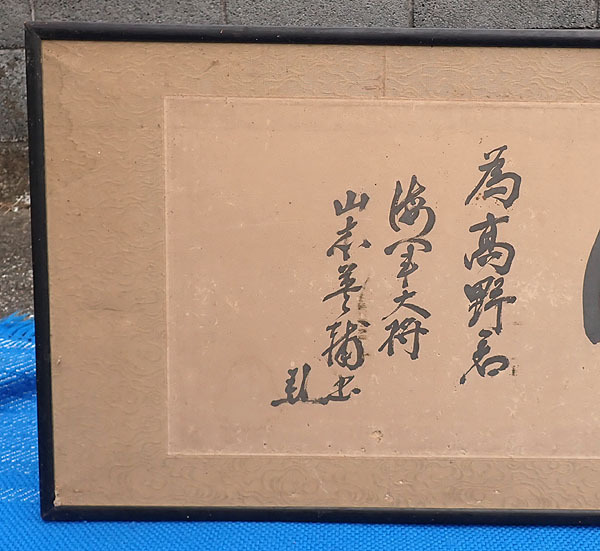 為高野君
海軍大将
山本英輔書